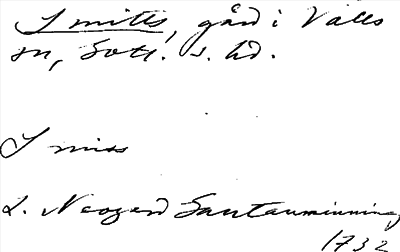 Smitts, gård i Valls
sn, Gotl. s. hd.
Smiss
L. Neogard Gautauminning
1732